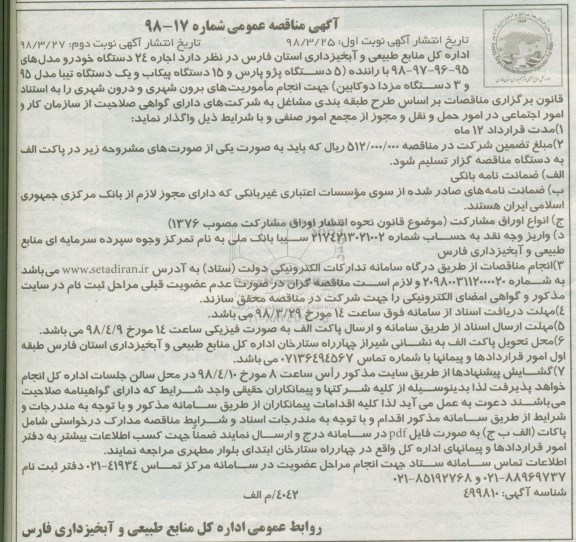 آگهی مناقصه عمومی شماره ۱۷-۹۸
تاریخ انتشار آگهی نوبت اول: ۹۸/۳/۲۵ تاریخ انتشار آگهی نوبت دوم: ۹۸/۳/۲۷
اداره کل منابع طبیعی و آبخیزداری استان فارس در نظر دارد اجاره ۲۴ دستگاه خودرو مدل‌های
۹۵-۹۶-۹۷-۹۸ با راننده (۵ دستگاه پژو پارس و ۱۵ دستگاه پیکاب و یک دستگاه تیبا مدل ۹۵
و ۳ دستگاه مزدا دوکابین) جهت انجام مأموریت‌های برون شهری و درون شهری را به استناد
قانون برگزاری مناقصات بر اساس طرح طبقه بندی مشاغل به شرکت‌های دارای گواهی صلاحیت از سازمان کار و
امور اجتماعی در امور حمل و نقل و مجوز از مجمع امور صنفی و با شرایط ذیل واگذار نماید:
۱)مدت قرارداد ۱۲ ماه
۲)مبلغ تضمین شرکت در مناقصه ۵۱۲/۰۰۰/۰۰۰ ریال که باید به صورت یکی از صورت‌های مشروحه زیر در پاکت الف
به دستگاه مناقصه گزار تسلیم شود.
الف) ضمانت نامه بانکی
ب) ضمانت نامه‌های صادر شده از سوی مؤسسات اعتباری غیربانکی که دارای مجوز لازم از بانک مرکزی جمهوری
اسلامی ایران هستند.
ج) انواع اوراق مشارکت (موضوع قانون نحوه انتشار اوراق مشارکت مصوب ۱۳۷۶)
د) واریز وجه نقد به حساب شماره ۲۱۷۴۲۱۳۰۲۱۰۰۲ سیبا بانک ملی به نام تمرکز وجوه سپرده سرمایه ای منابع
طبیعی و آبخیزداری فارس
۳)انجام مناقصات از طریق درگاه سامانه تدارکات الکترونیکی دولت (ستاد) به آدرس www.setadiran.ir می‌باشد
به شماره ۲۰۹۸۰۰۳۱۱۲۰۰۰۰۲۰ و لازم است مناقصه گران در صورت عدم عضویت قبلی مراحل ثبت نام در سایت
مذکور و گواهی امضای الکترونیکی را جهت شرکت در مناقصه محقق سازند.
۴)مهلت دریافت اسناد از سامانه فوق ساعت ۱۴ مورخ ۹۸/۳/۲۹ می باشد.
۵)مهلت ارسال اسناد از طریق سامانه و ارسال پاکت الف به صورت فیزیکی ساعت ۱۴ مورخ ۹۸/۴/۹ می باشد.
۶)محل تحویل پاکت الف به نشانی شیراز چهارراه ستارخان اداره کل منابع طبیعی و آبخیزداری استان فارس طبقه
اول امور قراردادها و پیمانها با شماره تماس ۰۷۱۳۶۴۹۴۵۶۷ می باشد.
۷)گشایش پیشنهادها از طریق سایت مذکور رأس ساعت ۸ مورخ ۹۸/۴/۱۰ در محل سالن جلسات اداره کل انجام
خواهد پذیرفت لذا بدینوسیله از کلیه شرکتها و پیمانکاران حقیقی واجد شرایط که دارای گواهینامه صلاحیت
می‌باشند دعوت به عمل می آید لذا کلیه اقدامات پیمانکاران از طریق سامانه مذکور و با توجه به مندرجات و
شرایط از طریق سامانه مذکور اقدام و با توجه به مندرجات اسناد و شرایط مناقصه مدارک درخواستی شامل
پاکات (الف ب ج) به صورت فایل pdf در سامانه درج و ارسال نمایند ضمناً جهت کسب اطلاعات بیشتر به دفتر
امور قراردادها و پیمانهای اداره کل واقع در چهارراه ستارخان ابتدای بلوار مطهری مراجعه نمایند.
اطلاعات تماس سامانه ستاد جهت انجام مراحل عضویت در سامانه مرکز تماس ۴۱۹۳۴-۰۲۱ دفتر ثبت نام
۸۸۹۶۹۷۳۷-۰۲۱ و ۸۵۱۹۲۷۶۸-۰۲۱
شناسه آگهی: ۴۹۹۸۱۰ ۴۰۴۲/م الف
روابط عمومی اداره کل منابع طبیعی و آبخیزداری فارس